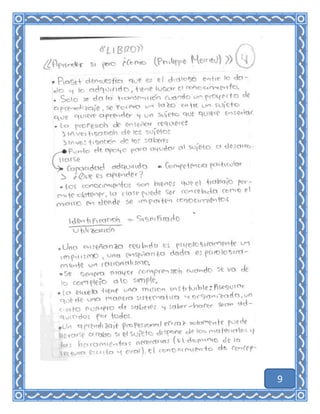 "LIBRO"
«Aprender si pero ¿Cómo (Philippe Meirieu)»
• Piaget demuestra que es el dialogo entre lo da-
do y lo adquirido, tiene lugar el conocimiento.
• Solo se da la transmisión cuando un proyecto de
aprendizaje, se forma un lazo entre un sujeto
que quiere aprender y un sujeto que quiere enseñar.
• La profesión de enseñar requiere
> Investigación de los sujetos
> Investigación de los saberes
• Punto de apoyo para ayudar al sujeto a desarro-
llarse
> Capacidad adquirida • Competencia particular
> ¿Que es aprender?
• Los conocimientos son bienes que el trabajo per-
mite obtener, la clase puede ser concebida como el
marco en donde se imparten conocimientos
Identificación = Significado
Utilización
• Una enseñanza recibida es psicologicamente un
empirismo, una enseñanza dada es psicologica-
mente un racionalismo.
• Se genera mayor comprensión cuando se va de
lo complejo a lo simple.
• La escuela tiene una mision instituible: Asegurar
que de una manera sistematica y organizada, un
cierto numero de saberes y saber-hacer sean ad-
quiridos por todos.
• Un aprendizaje profesional eficaz solamente puede
llevarse acabo si el sujeto dispone de los materiales y
las herramientas necesarias (El dominio de la
lectura escrita y oral), el conocimiento de concep-
9